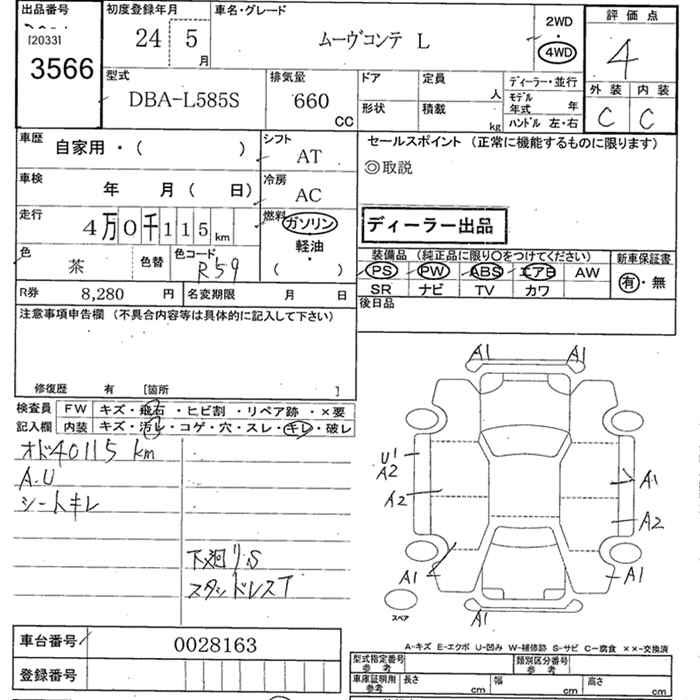 出品番号 初度登録年月 車名・グレード 2WD 評価点
[20331 24 5月 ムーヴコンテ L 4WD 4
3566
型式 排気量 ドア 定員 人 ディーラー・並行 外装 内装
DBA-L585S 660 CC 形状 積載 kg モデル年式 年 C C
ハンドル 左・右
車歴 自家用・( ) シフト AT セールスポイント (正常に機能するものに限ります)
◎取説
車検 年 月( 日) 冷房 AC
走行 4万0千115km 燃料 ガソリン ディーラー出品
軽油
・
( )
色 茶 色替 色コード R59
装備品 (純正品に限り○をつけてください) 新車保証書
PS PW ABS エアB AW 有・無
SR ナビ TV カワ
R券 8,280 円 名変期限 月 日 後日品
注意事項申告欄 (不具合内容等は具体的に記入して下さい)
修復歴 有 [箇所 ]
検査員 FW キズ・飛石・ヒビ割・リペア跡・×要
記入欄 内装 キズ・汚レ・コゲ・穴・スレ・キレ・破レ
オド40115km
A.U
シートキレ
下廻リS
スタッドレスT
A1 A1
U1
A2
A2
A1
A2
A1 A1
スペア A1
車台番号 0028163
登録番号
A-キズ E-エクボ U-凹み W-補修跡 S-サビ C-腐食 ××-交換済
型式指定番号 参考 類別区分番号 参考
車庫証明用 参考 長さ cm 幅 cm 高さ cm